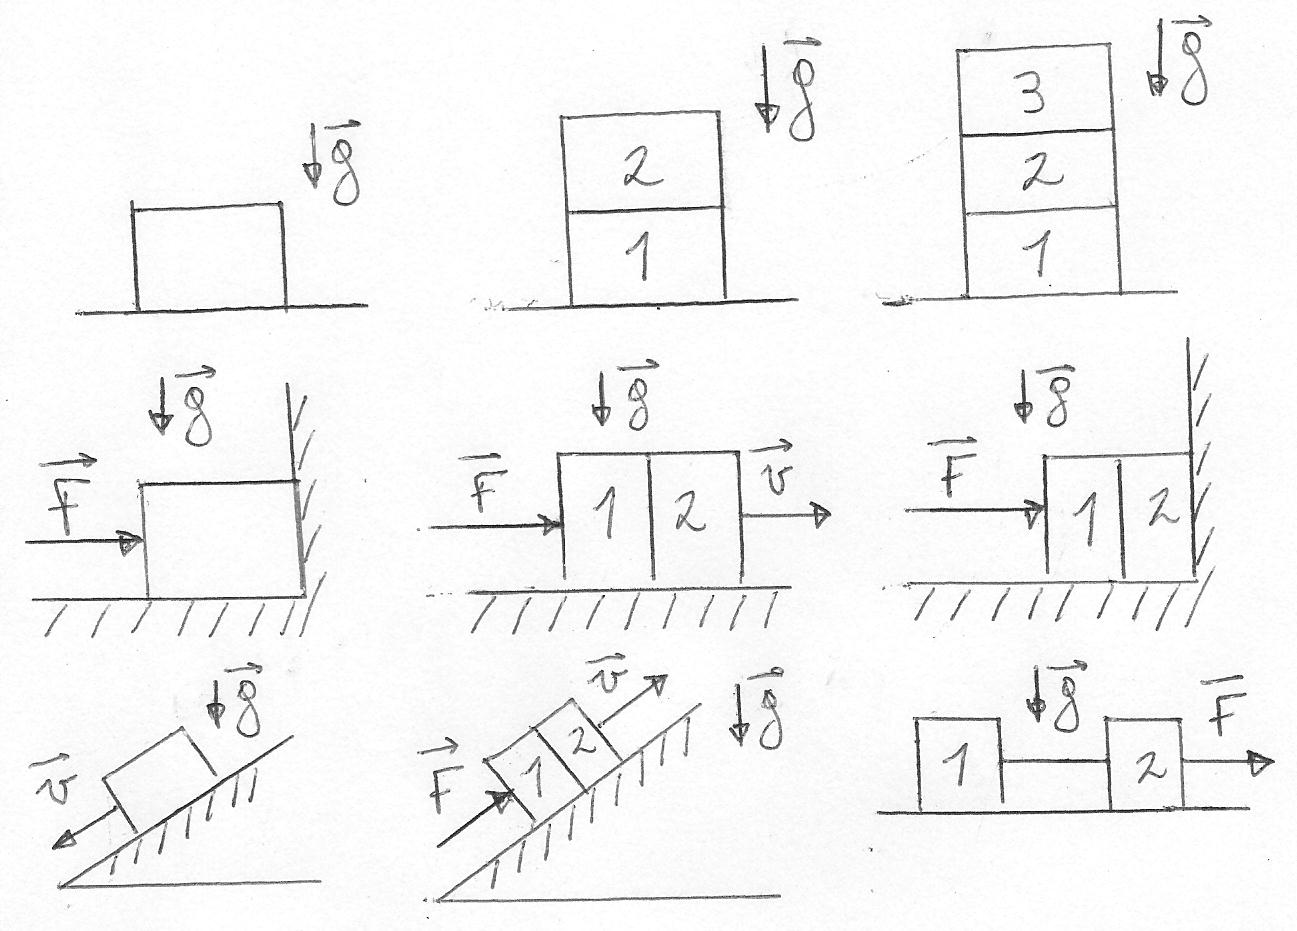 g⃗
g⃗
2
1
g⃗
3
2
1
g⃗
F⃗
g⃗
F⃗
1 2
v⃗
g⃗
F⃗
1 2
g⃗
v⃗
v⃗
g⃗
F⃗
1 2
g⃗
F⃗
1 2